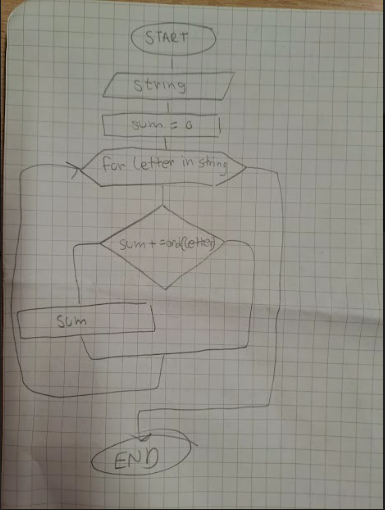 START
string
sum = 0
for letter in string
sum += ord(letter)
sum
END